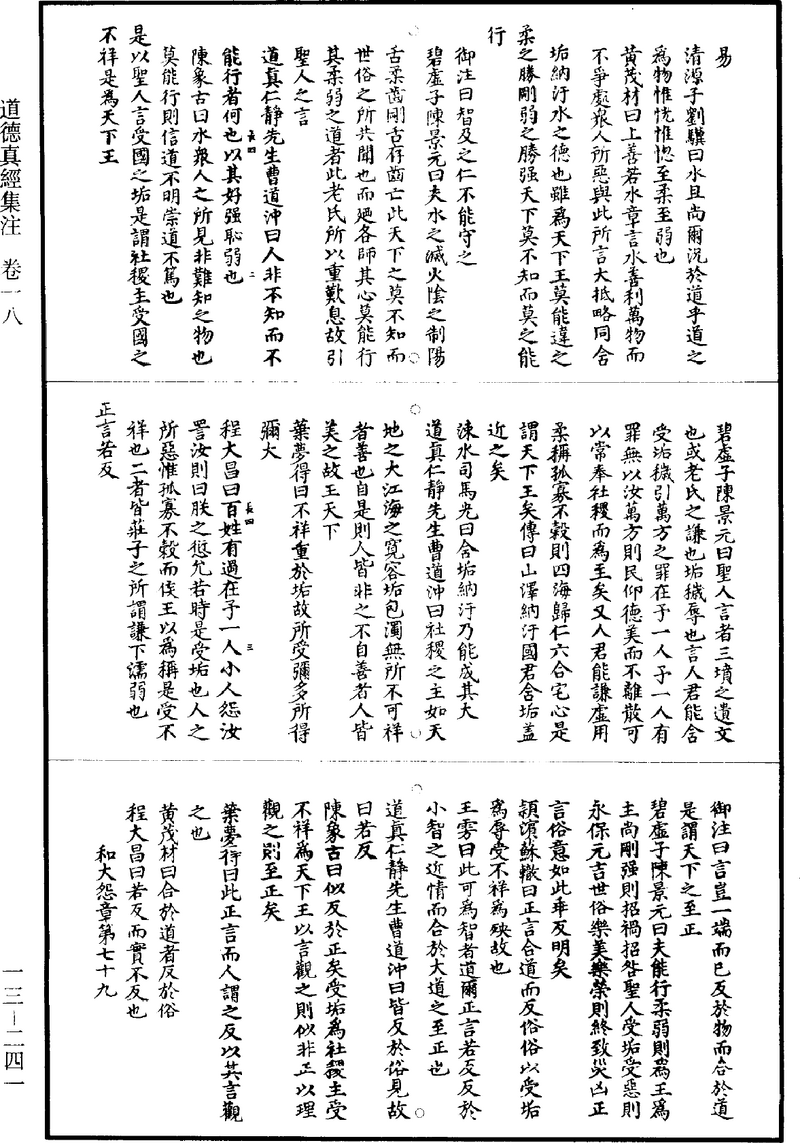 易
清源子劉驥曰水且尚爾況於道乎道之
為物惟恍惟惚至柔至弱也
黃茂材曰上善若水章言水善利萬物而
不爭處衆人所惡與此所言大抵略同含
垢納汙水之德也雖為天下王莫能違之
柔之勝剛弱之勝强天下莫不知而莫之能
行
御注曰智及之仁不能守之
碧虛子陳景元曰夫水之滅火陰之制陽
舌柔齒剛舌存齒亡此天下之莫不知而
世俗之所共聞也而迺各師其心莫能行
其柔弱之道者此老氏所以重歎息故引
聖人之言
道真仁靜先生曹道沖曰人非不知而不
能行者何也以其好强恥弱也
長四
二
陳象古曰水衆人之所見非難知之物也
莫能行則信道不明崇道不篤也
是以聖人言受國之垢是謂社稷主受國之
不祥是為天下王
碧虛子陳景元曰聖人言者三墳之遺文
也或老氏之謙也垢穢辱也言人君能含
受垢穢引萬方之罪在予一人予一人有
罪無以汝萬方則民仰德美而不離散可
以常奉社稷而為主矣又人君能謙虛用
柔稱孤寡不穀則四海歸仁六合宅心是
謂天下王矣傳曰山澤納汙國君含垢蓋
近之矣
涑水司馬光曰含垢納汙乃能成其大
道真仁靜先生曹道沖曰社稷之主如天
地之大江海之寬容垢包濁無所不可祥
者善也自是則人皆非之不自善者人皆
美之故王天下
葉夢得曰不祥重於垢故所受彌多所得
彌大
程大昌曰百姓有過在予一人小人怨汝
長四
三
詈汝則曰朕之愆允若時是受垢也人之
所惡惟孤寡不穀而侯王以為稱是受不
祥也二者皆莊子之所謂謙下濡弱也
正言若反
御注曰言豈一端而已反於物而合於道
是謂天下之至正
碧虛子陳景元曰夫能行柔弱則為王為
主尚剛强則招禍招咎聖人受垢受惡則
永保元吉世俗樂美樂榮則終致災凶正
言俗意如此乖反明矣
頴濱蘇轍曰正言合道而反俗俗以受垢
為辱受不祥為殃故也
王雱曰此可為智者道爾正言若反反於
小智之近情而合於大道之至正也
道真仁靜先生曹道沖曰皆反於俗見故
曰若反
陳象古曰似反於正矣受垢為社稷主受
不祥為天下王以言觀之則似非正以理
觀之則至正矣
葉夢得曰此正言而人謂之反以其言觀
之也
黃茂材曰合於道者反於俗
程大昌曰若反而實不反也
和大怨章第七十九
道德真經集注　卷一八
一三—二四一